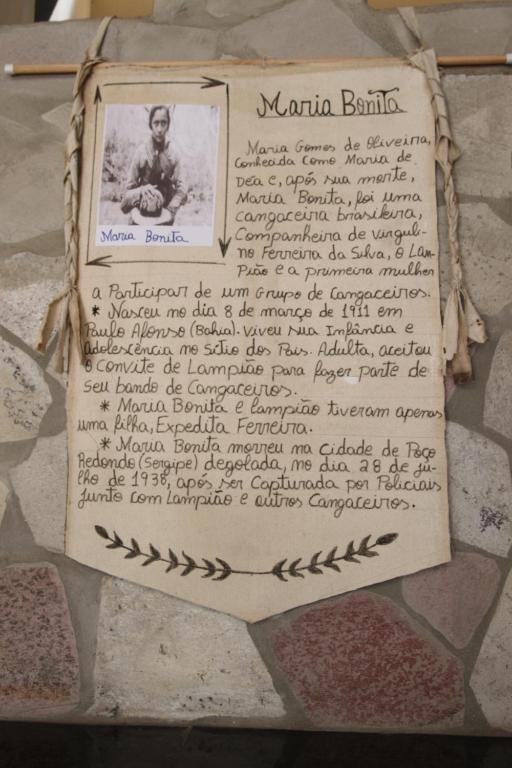 Maria Bonita
Maria Bonita
Maria Gomes de Oliveira,
Conhecida como Maria de
Déa e, após sua morte,
Maria Bonita, foi uma
cangaceira brasileira,
Companheira de virguli-
no Ferreira da Silva, o Lam-
Pião e a primeira mulher
a Participar de um Grupo de Cangaceiros.
* Nasceu no dia 8 de março de 1911 em
Paulo Afonso (Bahia). viveu sua Infância e
adolescência no Sítio dos Pais. Adulta, aceitou
o convite de Lampião para fazer parte de
seu bando de Cangaceiros.
* Maria Bonita e lampião tiveram apenas
uma filha, Expedita Ferreira.
* Maria Bonita morreu na cidade de Poço
Redondo (Sergipe) degolada, no dia 28 de ju-
lho de 1938, após ser Capturada por Policiais
junto com Lampião e outros Cangaceiros.